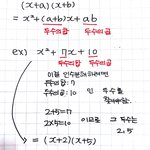 (x+a)(x+b)
= x²+(a+b)x+ab
두수의합 두수의곱
ex) x²+7x+10
두수의합 두수의곱
이걸 인수분해하려면
두수의합: 7
두수의곱: 10 인 두수를
찾아야함.
2+5=7
2×5=10 이므로 그 두수는
2, 5
= (x+2)(x+5)